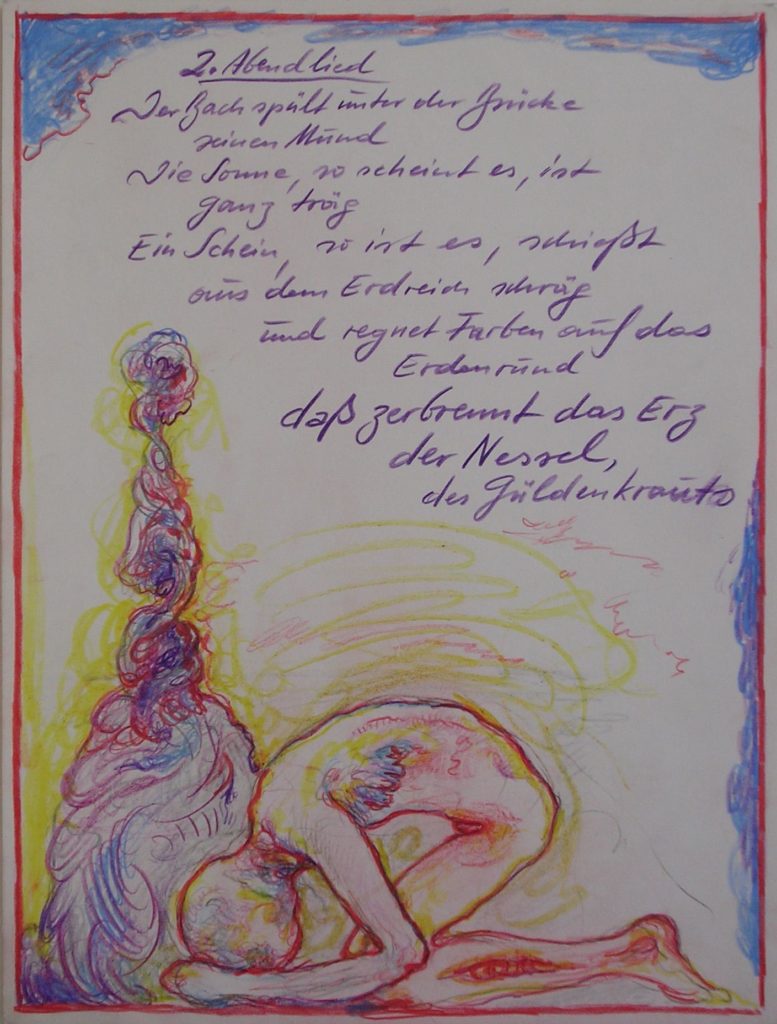 2. Abendlied
Der Bach spült unter der Brücke
seinen Mund
Die Sonne, so scheint es, ist
ganz träg
Ein Schein, so ist es, schießt
aus dem Erdreich schräg
und regnet Farben auf das
Erdenrund
daß zerbrennt das Erz
der Nessel,
des Güldenkrauts